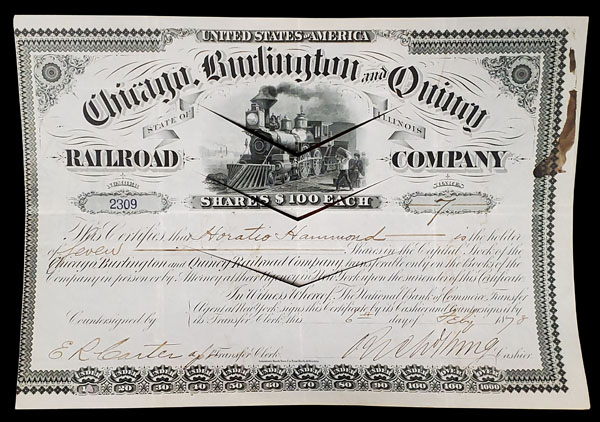 UNITED STATES OF AMERICA
Chicago, Burlington and Quincy
STATE OF ILLINOIS
RAILROAD COMPANY
NUMBER SHARES
2309 SHARES $100 EACH 7
This Certifies that Horatio Hammond is the holder
of Seven Shares in the Capital Stock of the
Chicago Burlington and Quincy Railroad Company transferable only on the books of the
Company in person or by Attorney at their Agency in New York upon the surrender of this Certificate.
In Witness Whereof, The National Bank of Commerce, Transfer
Agent at New York, signs this Certificate by its Cashier and Countersigns by
Countersigned by its Transfer Clerk, this 6 day of Feby 1878
E R Carter Transfer Clerk. Cashier
UNDER UNDER UNDER UNDER UNDER UNDER UNDER UNDER UNDER UNDER UNDER UNDER
20 30 40 50 60 70 80 90 100 100 1000